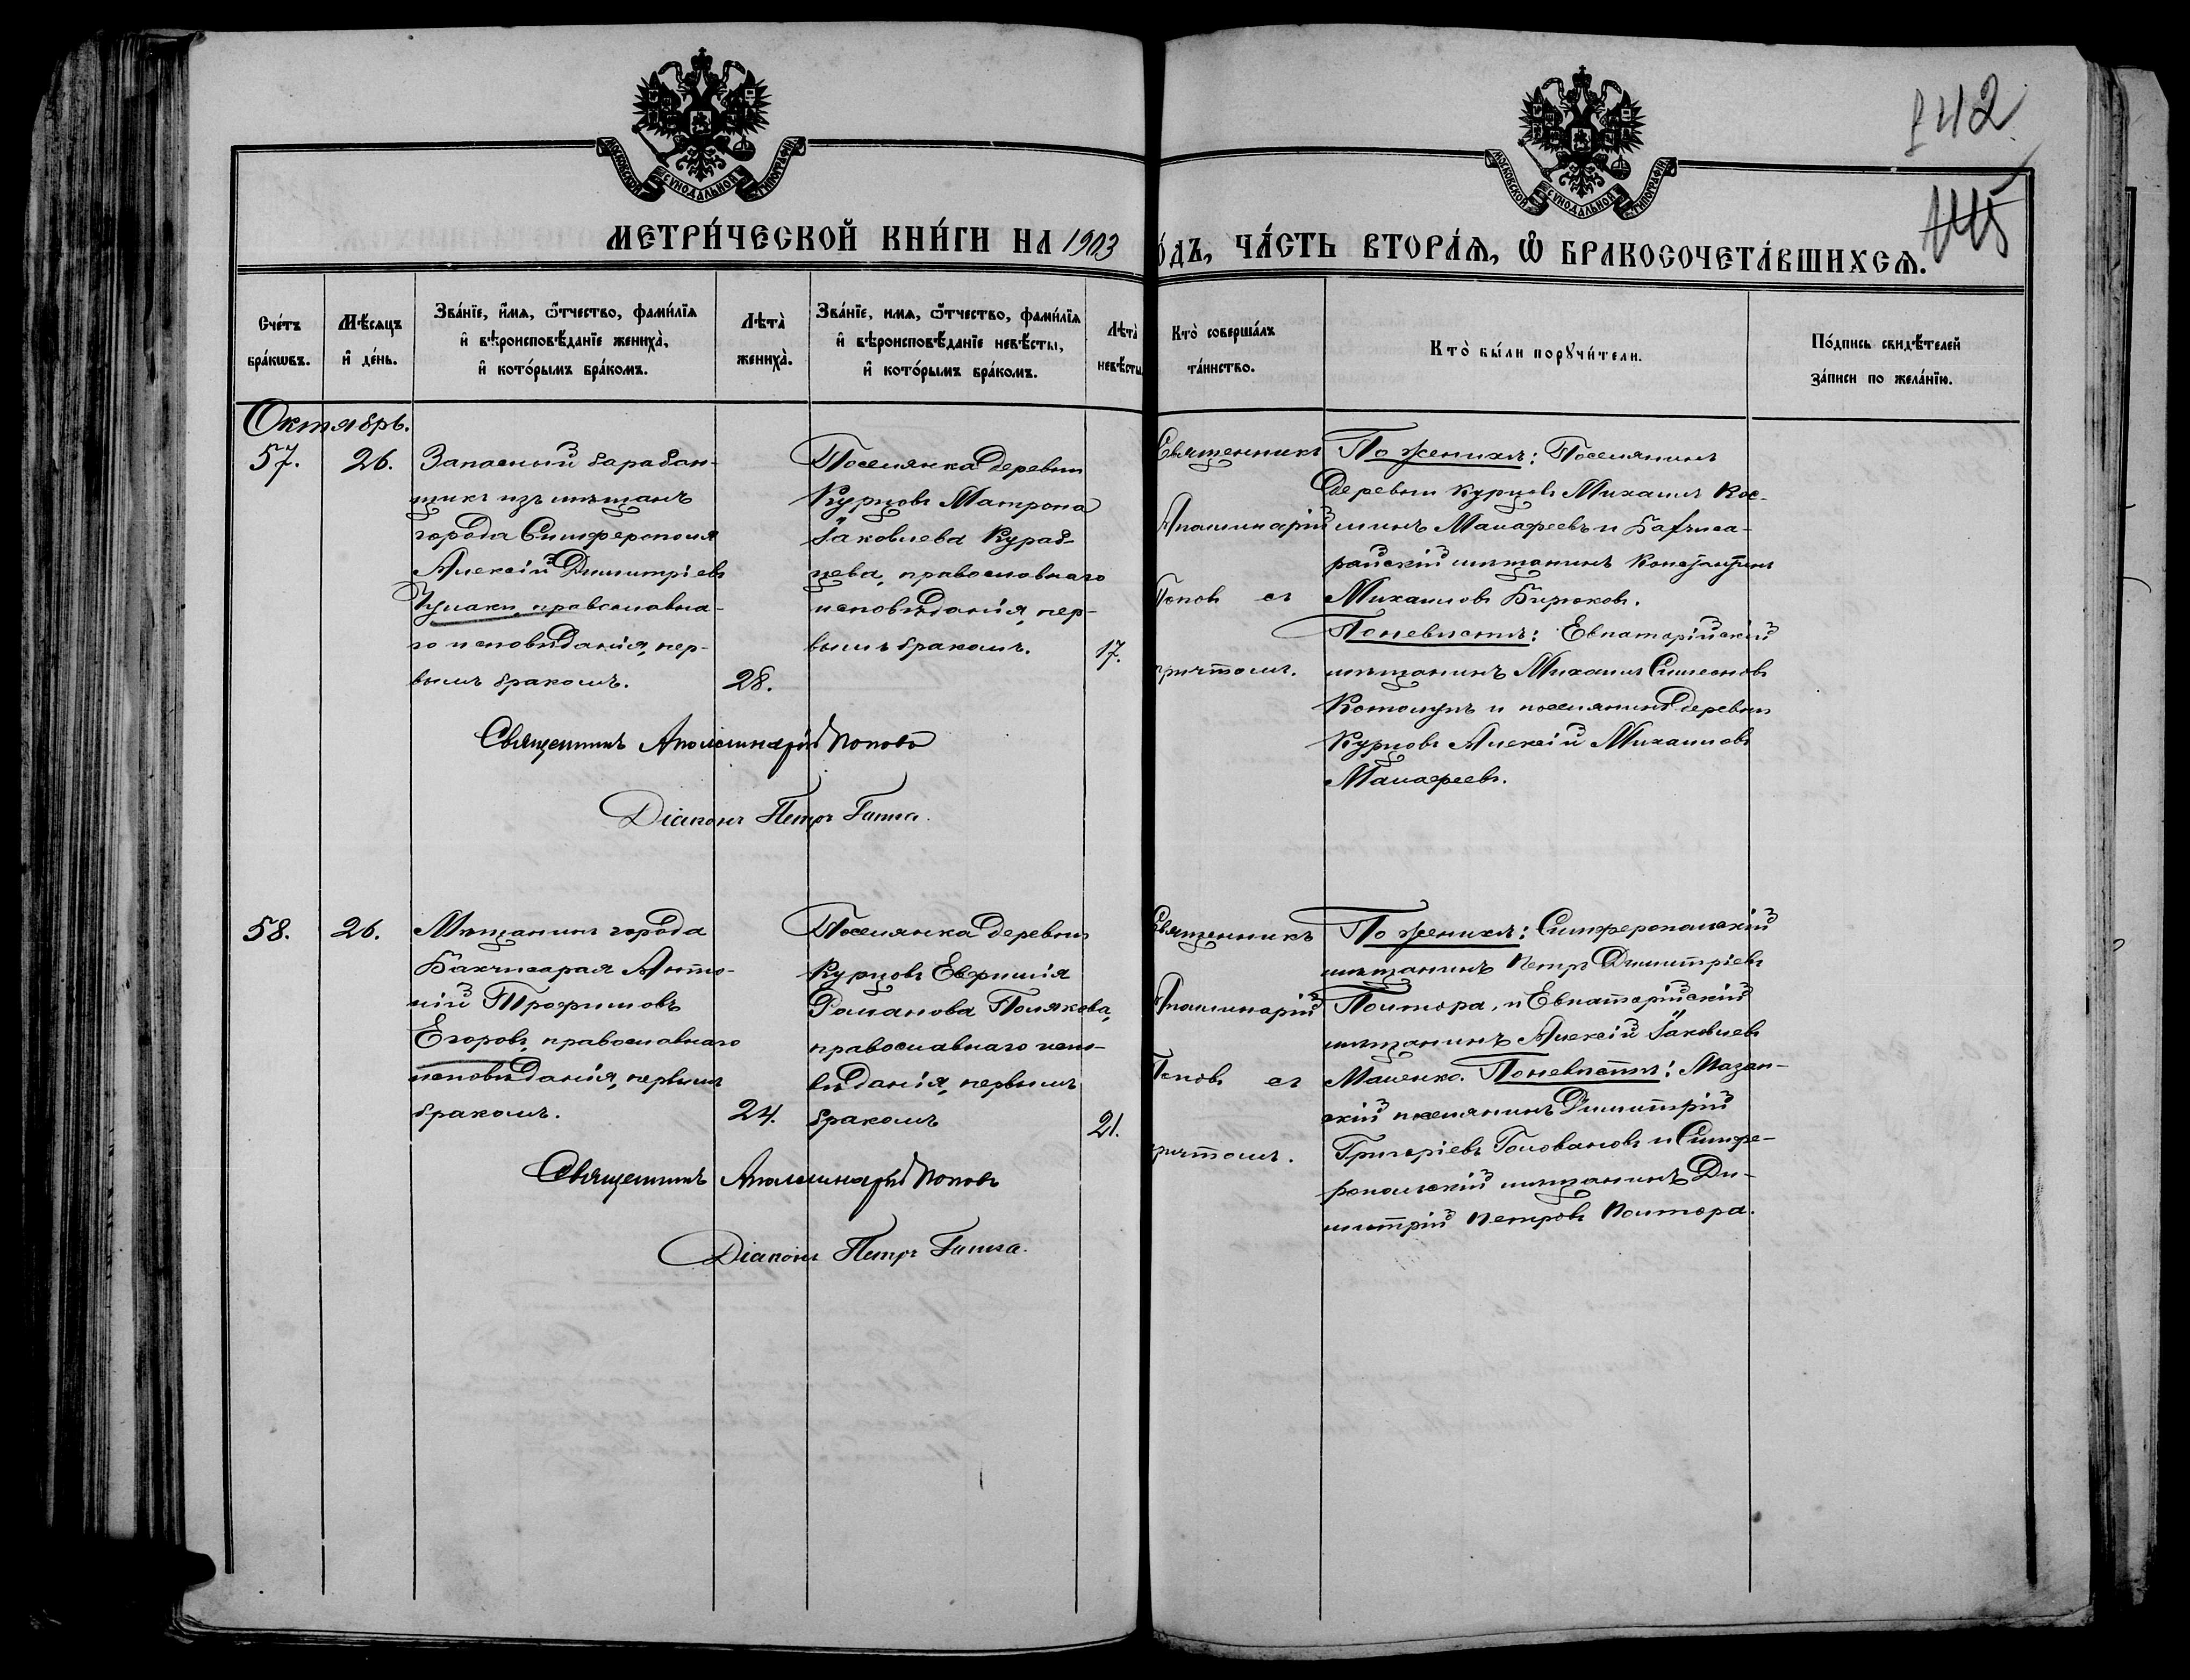 142
145
МОСКОВСКОЙ СУНОДАЛЬНОЙ ТИПОГРАФІИ
МОСКОВСКОЙ СУНОДАЛЬНОЙ ТИПОГРАФІИ
МЕТРИ́ЧЕСКОЙ КНИ́ГИ НА 1903
ОДЪ, ЧА́СТЬ ВТОРА́Ѧ, Ѿ БРАКОСОЧЕТА́ВШИХСѦ.
Сче́тъ бра́кѡвъ.
Мѣ́сяцъ и де́нь.
Зва́нїе, и́мѧ, ѻ҆́тчество, фами́лїѧ
и҆ вѣроисповѣ́данїе жениха̀,
и҆ кото́рымъ бра́комъ.
Лѣта̀ жениха̀.
Зва́нїе, имѧ, ѻ҆́тчество, фами́лїѧ
и҆ вѣроисповѣ́данїе невѣ́сты,
и҆ кото́рымъ бра́комъ.
Лѣта̀ невѣ́сты
Кто̀ соверша́лъ
та́инство.
Кто̀ бы́ли порꙋчи́тели.
По́дпись свидѣ́телей
за́писи по жела́нїю.
Октябрь.
57.
26.
Запасный барабан-
щикъ изъ мѣщанъ
города Симферополя
Алексій Димитріевъ
православна-
го исповѣданія, пер-
вымъ бракомъ.
28.
Поселянка деревни
Курцовъ Матрона
Іаковлева Курад-
цева, православнаго
исповѣданія, пер-
вымъ бракомъ.
17.
Священникъ
Аполлинарій
Поповъ съ
причтомъ.
По женихѣ: Поселянинъ
деревни Курцовъ Михаилъ Кос-
минъ Малафеевъ и Бахчиса-
райскій мѣщанинъ Константинъ
Михаиловъ Бирюковъ.
По невѣстѣ: Евпаторійскій
мѣщанинъ Михаилъ Симеоновъ
Котолупъ и поселянинъ деревни
Курцовъ Алексій Михаиловъ
Малафеевъ.
Священникъ Аполлинарій Поповъ
Діаконъ Петръ
58.
26.
Мѣщанинъ города
Бахчисарая Анто-
ній Трофимовъ
Егоровъ, православнаго
исповѣданія, первымъ
бракомъ.
24.
Поселянка деревни
Курцовъ Евфимія
Романова Полякова,
православнаго испо-
вѣданія, первымъ
бракомъ
21.
Священникъ
Аполлинарій
Поповъ съ
причтомъ.
По женихѣ: Симферопольскій
мѣщанинъ Петръ Димитріевъ
Полтора, и Евпаторійскій
мѣщанинъ Алексій Іаковлевъ
Маленко. По невѣстѣ: Мазан-
скій поселянинъ Димитрій
Григоріевъ Головановъ и Симфе-
ропольскій мѣщанинъ Ди-
митрій Петровъ Полтора.
Священникъ Аполлинарій Поповъ
Діаконъ Петръ